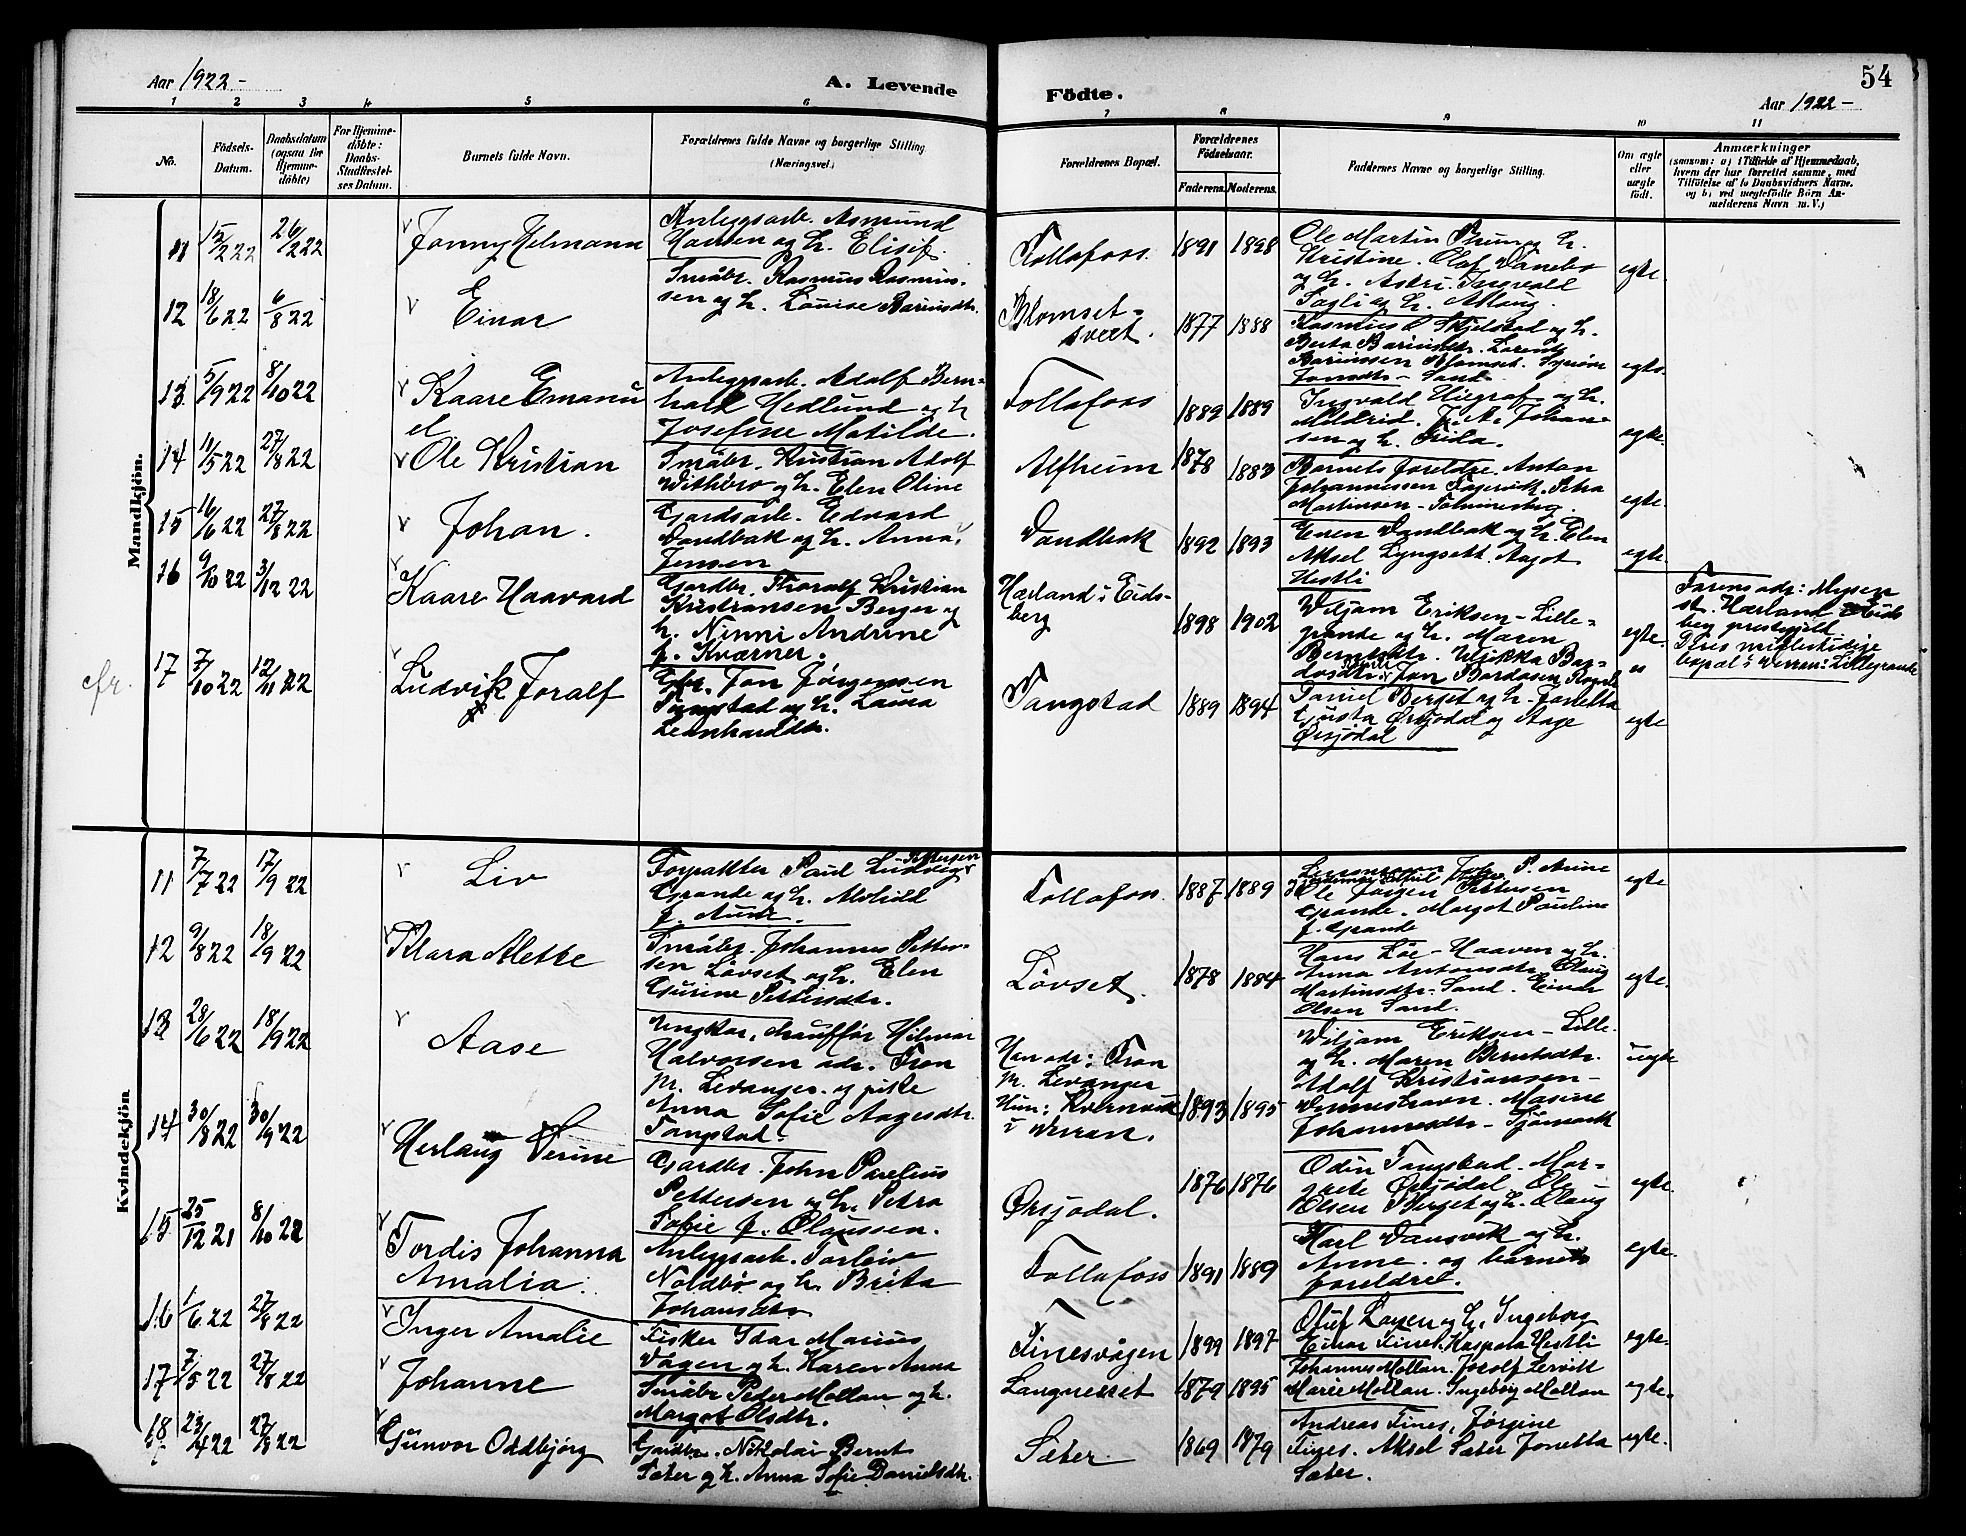 Aar 1922-
A. Levende
Födte.
54
Aar 1922-
1 2 3 4 5 6 7 8 9 10 11
No.
Födsels-
Datum.
Daabsdatum
(ogsaa for
Hjemme-
döbte)
For Hjemme-
döbte:
Daabs-
Stadfæstel-
ses Datum.
Barnets fulde Navn.
Forældrenes fulde Navne og borgerlige Stilling
(Næringsvei.)
Forældrenes Bopæl.
Forældrenes
Födselsaar.
Faderens. Moderens.
Faddernes Navne og borgerlige Stilling.
Om ægte
eller
uægte
födt.
Anmærkninger
(saasom: a) i Tilfælde af Hjemmedaab,
hvem der har forrettet samme, med
Tilföielse af to Daabsvidners Navne.
og b) ved uegtefödte Börn An-
melderens Navn m. V.)
Mandkjön.
11 15/2 22 26/2 22
Jonny Helmann
Anleggsarb. Asmund
Hansen og h. Elisif.
Follafoss. 1891 1898
Ole Martin
Kristine. Olaf Vaneba
og h. Astri. Ingvald
Sagli og h. Aslaug.
egte.
12 18/6 22 6/8 22
Einar
Småbr. Rasmus Rasmus-
sen og h. Lovise Bariusdtr.
Blomset-
svert. 1877 1888
Rasmus Skjelstad og h.
Berta Bariusdtr. Lorents
Bariussen Blomset.
Jonsdtr - Sand.
egte.
13 5/9 22 8/10 22
Kaare Emanu
el
Anleggsarb. Adolf Bern-
hard Hedlund og h
Josefine Matilde.
Follafoss 1889 1889
Ingvald og h.
Mildrid. J. A. Johan-
sen og h. Frida.
egte.
14 11/5 22 27/8 22
Ole Kristian
Småbr. Kristian Adolf
Withbro og h. Elen Oline
Alfheim 1878 1883
Barnets foreldre. Anton
Johannessen Fagervik. Petra
Martinsen-
egte.
15 16/6 22 27/8 22
Johan.
Gardsarb. Edvard
Vandbak og h. Anna,
Jensen
Vandbak 1892 1893
Vandbak og h. Elen
Aksel Lyngsett. Aagot
Hestli
egte.
16 9/10 22 3/12 22
Kaare Haavard
Gardbr. Thoralf Kristian
Kristiansen Berger og
h. Ninni Andrine
f. Kværner.
Hærland i Eids-
berg 1898 1902
Wiljam Eriksen - Lille-
grande og h. Maren
Berntsdtr.
egte.
Farens adr: Mysen
st. Hærland Eids
berg prestegjell
Deres midlertidige
bopæl i Verran: Lillegrande
cfr. 17 7/10 22 12/11 22
Ludvik Joralf
Gbr. Jon Jørgensen
Tangstad og h. Laura
Leonhardtdtr.
Tangstad 1889 1894
Daniel Berget og h. Jonetta
Gusta Ørsjødal og Aage
Ørsjødal
egte
Kvindekjön
11 7/7 22 17/9 22
Liv
Forpakter Paul Ludvig Pettersen
Grande og h. Alvhild
f. Aune.
Follafoss. 1887 1889
P. Aune
Ole Jørgen Pettersen
Grande. Margot Pauline
f. Grande
egte
12 9/8 22 18/9 22
Klara Alette
Småbr. Johannes Petter-
sen Løvset og h. Elen
Gurine Pettersdtr.
Løvset. 1878 1884
Hans Løe - Haaven og h.
Anna Antonsdtr. Olaug
Martinsdtr. Sand. Einar
Olsen Sand.
egte.
13 28/6 22 18/9 22
Aase
Ungkar, chauffør Hilmar
Halvorsen adr. Fron
pr. Levanger. og pike
Anna Sofie Aagesdtr.
Tangstad.
Han adr: Fron
pr. Levanger
Hun: Kvernvik
i Verran. 1893 1895
Wiljam Eriksen - Lille.
og h. Maren Berntsdtr.
Adolf Kristiansen-
Vinneshavn. Masine
Johannesdtr - Tjømark
uegte
14 30/8 22 30/9 22
Herlaug Verine
Gardbr. John Parelius
Pettersen og h. Petra
Sofie f. Olaussen.
Ørsjødal. 1876 1876
Odin Tangstad. Mar-
grete Ørsjødal. Ole
Olsen Berget og h. Olaug
egte.
15 25/12 21 8/10 22
Tordis Johanna
Amalia.
Anleggsarb. Torleiv
Noldbø og h. Brita
Johansdtr
Follafoss 1891 1889
Karl Vansvik og h.
Anne. og barnets
foreldre.
egte.
16 1/6 22 27/8 22
Inger Amalie
Fisker Idar Marius
Vågen og h. Karen Anna
Finesvågen 1899 1897
Oluf Layen og h. Ingeborg
Einar Fines. Kaspara Hestli
egte.
17 7/5 22 27/8 22
Johanne
Småbr Peder Mollan og h.
Margot Olsdtr.
Langnesset 1879 1895
Johannes Mollan. Jorolf Lervik
Marie Mollan. Ingeborg Mollan
egte.
18 23/4 22 27/8 22
Gunvor Oddbjørg
Gardbr. Nikolai Bernt
Sæter og h. Anna Sofie Danielsdtr.
Sæter. 1869 1879
Andreas Fines, Jørgine
Fines. Aksel Sæter Jonetta
Sæter.
egte.